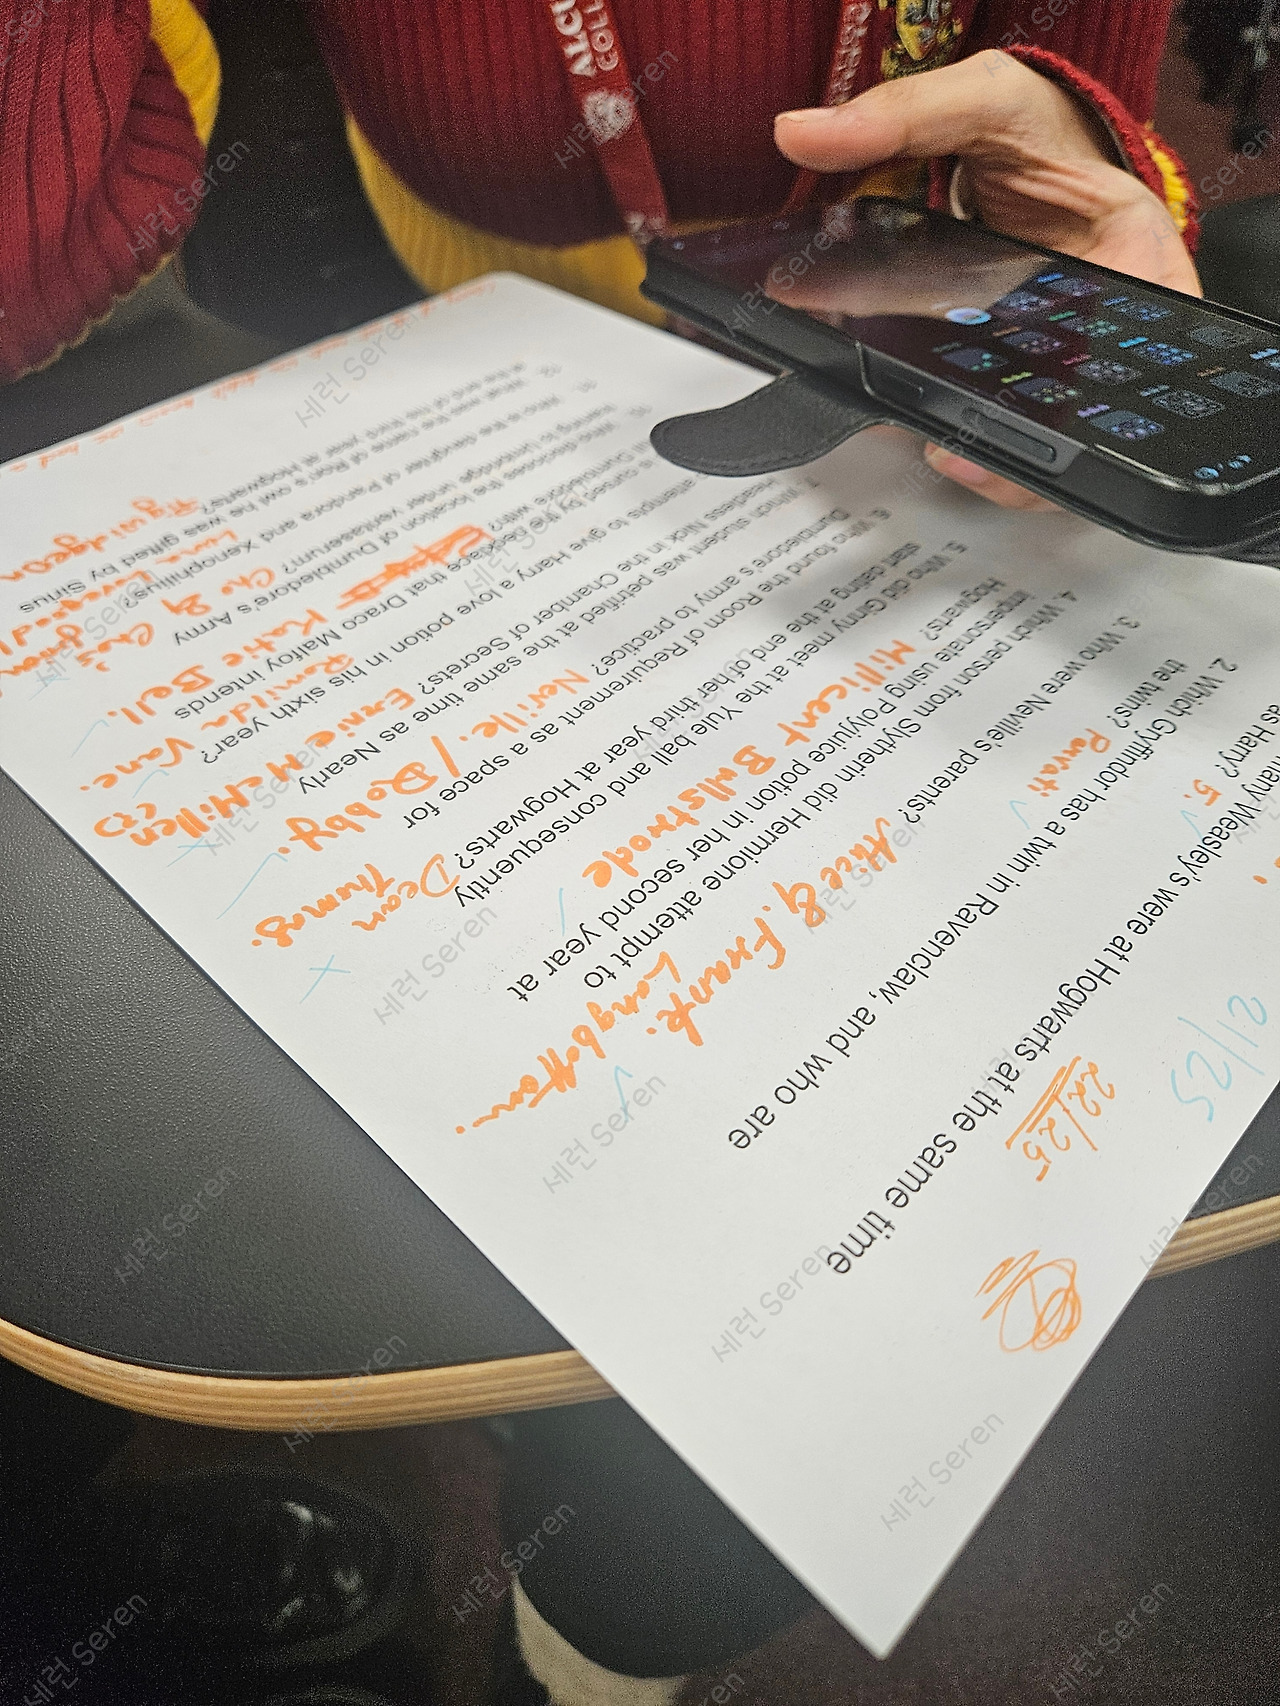 21/25
22/25
many Weasley's were at Hogwarts at the same time
as Harry? 5.
2. Which Gryffindor has a twin in Ravenclaw, and who are
the twins? Parvati
3. Who were Neville's parents? Alice & Frank
Longbottom.
4. Which person from Slytherin did Hermione attempt to
impersonate using Polyjuice potion in her second year at
Hogwarts? Millicent Bullstrode
5. Who did Ginny meet at the Yule ball and consequently
start dating at the end of her third year at Hogwarts? Dean
Thomas.
6. Who found the Room of Requirement as a space for
Dumbledore's army to practice? Neville. / Dobby.
7. Which student was petrified at the same time as Nearly
Headless Nick in the Chamber of Secrets? Ernie McMillen
attempts to give Harry a love potion in his sixth year?
Romilda Vane.
is cursed by the necklace that Draco Malfoy intends
Dumbledore with? Katie Bell.
10. Who discloses the location of Dumbledore's Army
training to Umbridge under veritaserum? Cho
11. Who is the daughter of Pandora and Xenophilius?
Luna Lovegood
12. What was the name of Ron's owl he was gifted by Sirius
at the end of his third year at Hogwarts?
Pigwidgeon
세런 Seren